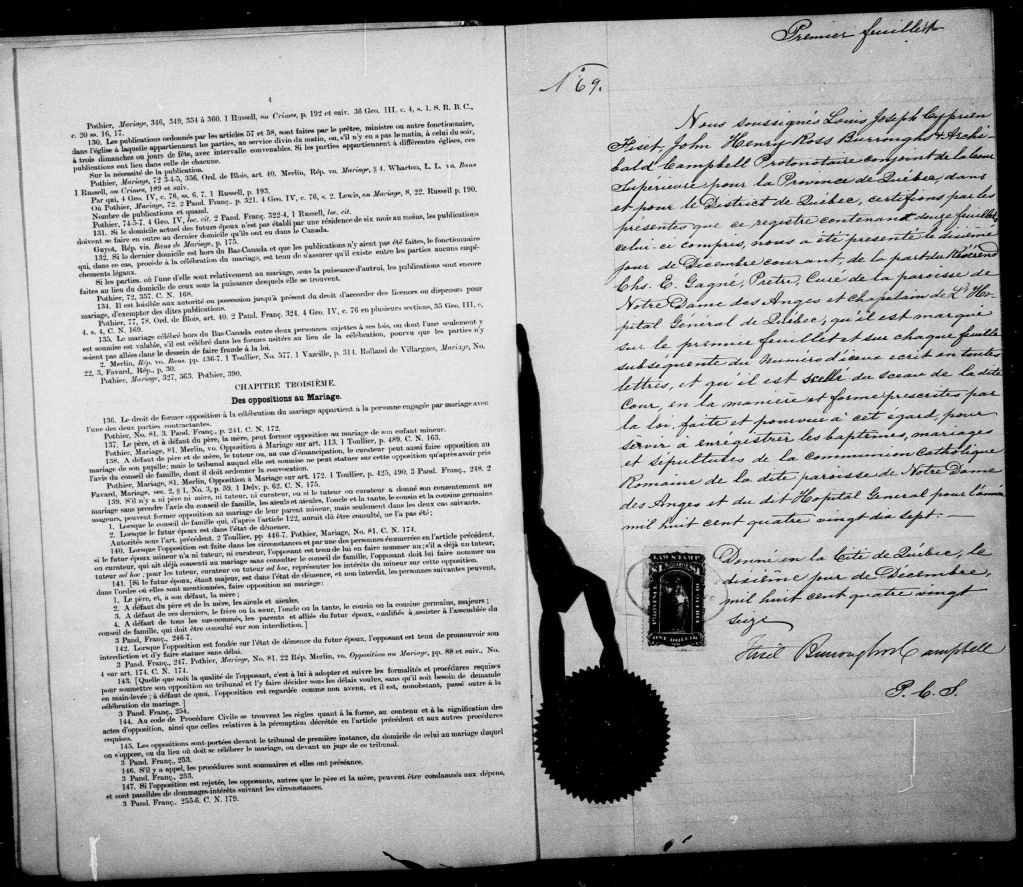 4
Pothier, Mariage, 346, 349, 354 à 360. 1 Russell, on Crimes, p. 192 et suiv. 36 Geo. III. c. 4, s. 1. S. R. B. C.,
c. 20 ss. 16, 17.
130. Les publications ordonnés par les articles 57 et 58, sont faites par le prêtre, ministre ou autre fonctionnaire,
dans l'église à laquelle appartiennent les parties, au service divin du matin, ou, s'il n'y en a pas le matin, à celui du soir,
à trois dimanches ou jours de fête, avec intervalle convenables. Si les parties appartiennent à différentes églises, ces
publications ont lieu dans celle de chacune.
Sur la nécessité de la publication.
Pothier, Mariage, 72 3-4-5, 356, Ord. de Blois, art. 40. Merlin, Rép. vo. Mariage, § 4. Wharton, L. L. vo. Bans
1 Russell, on Crimes, 189 et suiv.
Par qui, 4 Geo. IV, c. 76, ss. 6, 7. 1 Russell, p. 193.
Où Pothier, Mariage, 72. 2 Pand. Franç., p. 321. 4 Geo. IV, c. 76, s. 2. Lewis, on Mariage, 8, 22. Russell p. 190.
Nombre de publications et quand.
Pothier, 74-5-7. 4 Geo. IV, loc. cit. 2 Pand. Franç. 322-4, 1 Russell, loc. cit.
131. Si le domicile actuel des futurs époux n'est pas établi par une résidence de six mois au moins, les publications
doivent se faire en outre au dernier domicile qu'ils ont eu dans le Canada.
Guyot, Rép. vis. Bans de Mariage, p. 175.
132. Si le dernier domicile est hors du Bas-Canada et que les publications n'y aient pas été faites, le fonctionnaire
qui, dans ce cas, procède à la célébration du mariage, est tenu de s'assurer qu'il existe entre les parties aucuns empê-
chements légaux.
Si les parties, où l'une d'elle sont relativement au mariage, sous la puissance d'autrui, les publications sont encore
faites au lieu du domicile de ceux sous la puissance desquels elle se trouvent.
Pothier, 72, 357. C. N. 168.
134. Il est loisible aux autorité en possession jusqu'à présent du droit d'accorder des licences ou dispenses pour
mariage, d'exempter des dites publications.
Pothier, 77, 78. Ord. de Blois, art. 40. 2 Pand. Franç. 324. 4 Geo. IV, c. 76 en plusieurs sections, 35 Geo. III, c.
4. s. 4, C. N. 169.
135. Le mariage célébré hors du Bas-Canada entre deux personnes sujettes à ses lois, ou dont l'une seulement y
est soumise est valable, s'il est célébré dans les formes usitées au lieu de la célébration, pourvu que les parties n'y
soient pas allées dans le dessein de faire fraude à la loi.
2. Merlin, Rép. vo. Bans. pp. 436-7. 1 Toullier, No. 577. 1 Vazeille, p. 311. Rolland de Villargues, Mariage, No,
22, 3, Favard, Rép., p. 30.
Pothier, Mariage, 327, 363. Pothier, 390.
CHAPITRE TROISIÈME.
Des oppositions au Mariage.
136. Le droit de former opposition à la célébration du mariage appartient à la personne engagée par mariage avec
l'une des deux parties contractantes.
Pothier, No. 81, 3. Pand. Franç., p. 241. C. N. 172.
137. Le père, et à défaut du père, la mère, peut former opposition au mariage de son enfant mineur.
Pothier, Mariage, 81. Merlin, vo. Opposition à Mariage sur art. 113. 1 Toullier, p. 489. C. N. 163.
138. A défaut de père et de mère, le tuteur ou, au cas d'émancipation, le curateur peut aussi faire opposition au
mariage de son pupille; mais le tribunal auquel elle est soumise ne peut statuer sur cette opposition qu'après avoir pris
l'avis du conseil de famille, dont il doit ordonner la convocation.
Pothier, Mariage, 81. Merlin, Opposition à Mariage sur art. 172. 1 Toullier, p. 425, 490, 3 Pand. Franç., 248. 2
Favard, Mariage, sec. 2, § 1, No. 3, p. 59. 1 Delv. p. 62. C. N. 175.
139. S'il n'y a ni père ni mère, ni tuteur, ni curateur, ou si le tuteur ou curateur a donné son consentement au
mariage sans prendre l'avis du conseil de famille, les aïeuls et aïeules, l'oncle et la tante, le cousin et la cousine germains
majeurs, peuvent former opposition au mariage de leur parent mineur, mais seulement dans les deux cas suivants.
1. Lorsque le conseil de famille qui, d'après l'article 122, aurait dû être consulté, ne l'a pas été;
2. Lorsque le futur époux est dans l'état de démence.
Autorités sous l'art. précédent. 2 Toullier, pp 446-7. Pothier, Mariage, No. 81. C. N. 174.
140. Lorsque l'opposition est faite dans les circonstances et par une des personnes énumérées en l'article précédent,
si le futur époux mineur n'a ni tuteur, ni curateur, l'opposant est tenu de lui en faire nommer un; s'il a déjà un tuteur,
ou curateur, qui ait déjà consenti au mariage sans consulter le conseil de famille, l'opposant doit lui faire nommer un
tuteur ad hoc; pour les tuteur, curateur ou tuteur ad hoc, représenter les intérêts du mineur sur cette opposition.
141. [Si le futur époux, étant majeur, est dans l'état de démence, et non interdit, les personnes suivantes peuvent,
dans l'ordre où elles sont mentionnées, faire opposition au mariage:
1. Le père, et, à son défaut, la mère;
2. A défaut du père et de la mère, les aïeuls et aïeules.
3. A défaut de ces derniers, le frère ou la sœur, l'oncle ou la tante, le cousin ou la cousine germains, majeurs;
4. A défaut de tous les sus-nommés, les parents et alliés du futur époux, qualifiés à assister à l'assemblée du
conseil de famille, qui doit être consulté sur cette interdiction.]
3 Pand. Franç., 246-7.
142. Lorsque l'opposition est fondée sur l'état de démence du futur époux, l'opposant est tenu de promouvoir son
interdiction et d'y faire statuer sans délai.
3 Pand. Franç., 247. Pothier, Mariage, No. 81. 22 Rép. Merlin, vo. Opposition au Mariage, pp. 88 et suiv., No.
4 sur art. 174. C. N. 174.
143. [Quelque que soit la qualité de l'opposant, c'est à lui à adopter et suivre les formalités et procédures requises
pour soumettre son opposition au tribunal et l'y faire décider sous les délais voulus, sans qu'il soit besoin de demande
en main-levée; à défaut de quoi, l'opposition est regardée comme non avenu, et il est, nonobstant, passé outre à la
célébration du mariage.]
3 Pand. Franç., 254.
144. Au code de Procédure Civile se trouvent les règles quant à la forme, au contenu et à la signification des
actes d'opposition, ainsi que celles relatives à la péremption décrétée en l'article précédent et aux autres procédures
requises.
145. Les oppositions sont portées devant le tribunal de première instance, du domicile de celui au mariage duquel
on s'oppose, ou du lieu où doit se célébrer le mariage, ou devant un juge de ce tribunal.
3 Pand. Franç., 253.
146. S'il y a appel, les procédures sont sommaires et elles ont préséance.
3 Pand. Franç., 253.
147. Si l'opposition est rejetée, les opposants, autres que le père et la mère, peuvent être condamnés aux dépens,
et sont passibles de dommages-intérêts suivant les circonstances.
3 Pand. Franç., 255-6. C. N. 179.
Premier feuillet
No 69.
Nous soussignés Louis Joseph Cyprien
Fiset, John Henry Ross Burroughs & Archi-
bald Campbell Protonotaire conjoint de la Cour
Supérieure pour la Province de Québec, dans
et pour le District de Québec, certifions par les
presentes que ce registre contenant douze feuillets,
celui-ci compris, nous a été présenté le dixième
jour de Décembre courant, de la part du Révérend
Chs. E. Gagné, Pretre, Curé de la paroisse de
Notre Dame des Anges et chapelain de L'Ho-
pital Général de Québec, qu'il est marqué
sur le premier feuillet et sur chaque feuillet
subséquente du Numéro d'iceux ecrit en toutes
lettres, et qu'il est scellé du sceau de la dite
Cour, en la manière et forme prescrites par
la loi, faite et pourvue à cet egard, pour
servir à enregistrer les baptêmes, mariages
et sépultures de la communion Catholique
Romaine de la dite paroisse de Notre Dame
des Anges et du dit Hopital General pour l'année
mil huit cent quatre vingt dix sept. —
Donné en la Cité de Québec, le
dixième jour de Décembre,
mil huit cent quatre vingt
seize
LAW STAMP
PROVINCE
QUEBEC
ONE DOLLAR
Fiset Burroughs & Campbell
P. C. S.